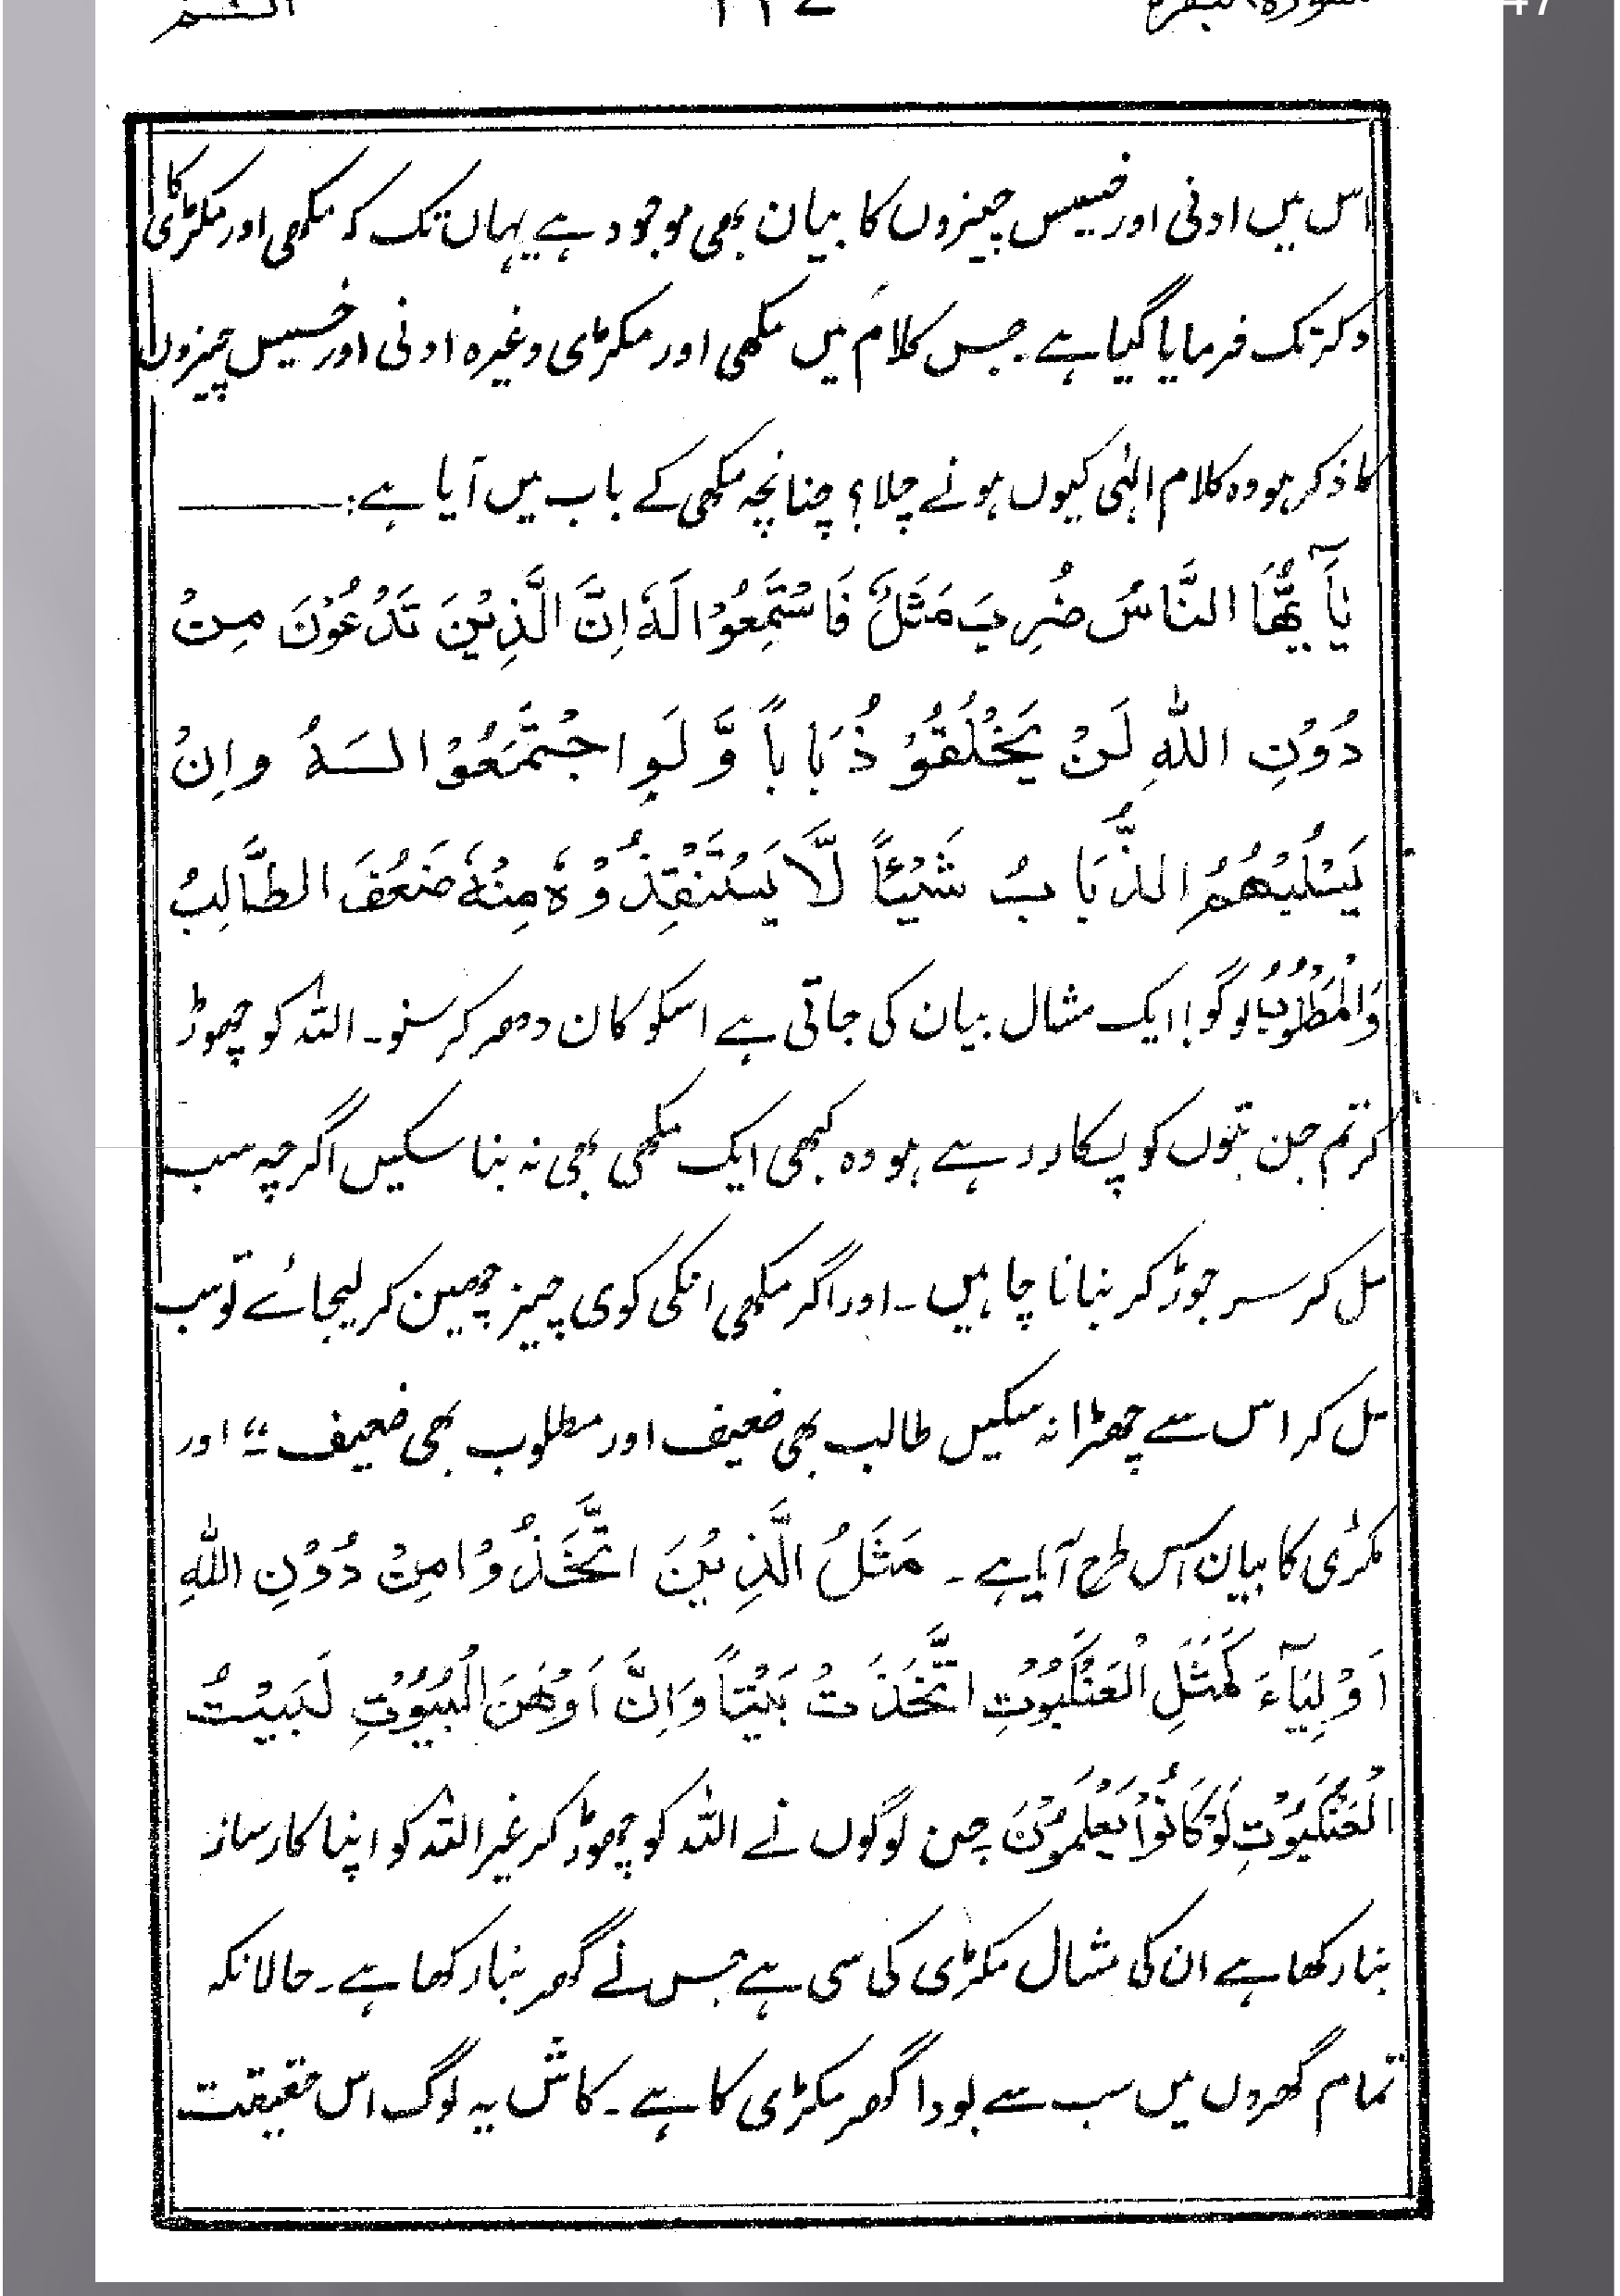 47
اس میں ادنی اور خسیس چیزوں کا بیان بھی موجود ہے یہاں تک کہ مکھی اور مکڑی کا
ذکر تک فرمایا گیا ہے۔ جس کلام میں مکھی اور مکڑی وغیرہ ادنی اور خسیس چیزوں
کا ذکر ہو وہ کلام الہٰی کیوں ہونے چلا؟ چنانچہ مکھی کے باب میں آیا ہے:
يٰٓاَيُّهَا النَّاسُ ضُرِبَ مَثَلٌ فَاسْتَمِعُوْا لَهٗ اِنَّ الَّذِيْنَ تَدْعُوْنَ مِنْ
دُوْنِ اللّٰهِ لَنْ يَخْلُقُوْ ذُبَاباً وَّ لَوِ اجْتَمَعُوْا لَهُ وَاِنْ
يَسْلُبْهُمُ الذُّبَابُ شَيْئًا لَّا يَسْتَنْقِذُوْهُ مِنْهٗ ضَعُفَ الطَّالِبُ
وَالْمَطْلُوْبُ لوگو! ایک مثال بیان کی جاتی ہے اسکو کان دھر کر سنو۔ اللہ کو چھوڑ
کر تم جن بتوں کو پکار رہے ہو وہ کبھی ایک مکھی بھی نہ بنا سکیں اگرچہ سب
مل کر سر جوڑ کر بنانا چاہیں۔ اور اگر مکھی انکی کوی چیز چھین کر لیجائے تو سب
مل کر اس سے چھڑا نہ سکیں طالب بھی ضعیف اور مطلوب بھی ضعیف۔“ اور
مکڑی کا بیان اس طرح آیا ہے۔ مَثَلُ الَّذِيْنَ اتَّخَذُوْا مِنْ دُوْنِ اللّٰهِ
اَوْلِيَآءَ كَمَثَلِ الْعَنْكَبُوْتِ اتَّخَذَتْ بَيْتًا وَاِنَّ اَوْهَنَ الْبُيُوْتِ لَبَيْتُ
الْعَنْكَبُوْتِ لَوْ كَانُوْا يَعْلَمُوْنَ جن لوگوں نے اللہ کو چھوڑ کر غیر اللہ کو اپنا کارساز
بنا رکھا ہے ان کی مثال مکڑی کی سی ہے جس نے گھر بنا رکھا ہے۔ حالانکہ
تمام گھروں میں سب سے بودا گھر مکڑی کا ہے۔ کاش یہ لوگ اس حقیقت